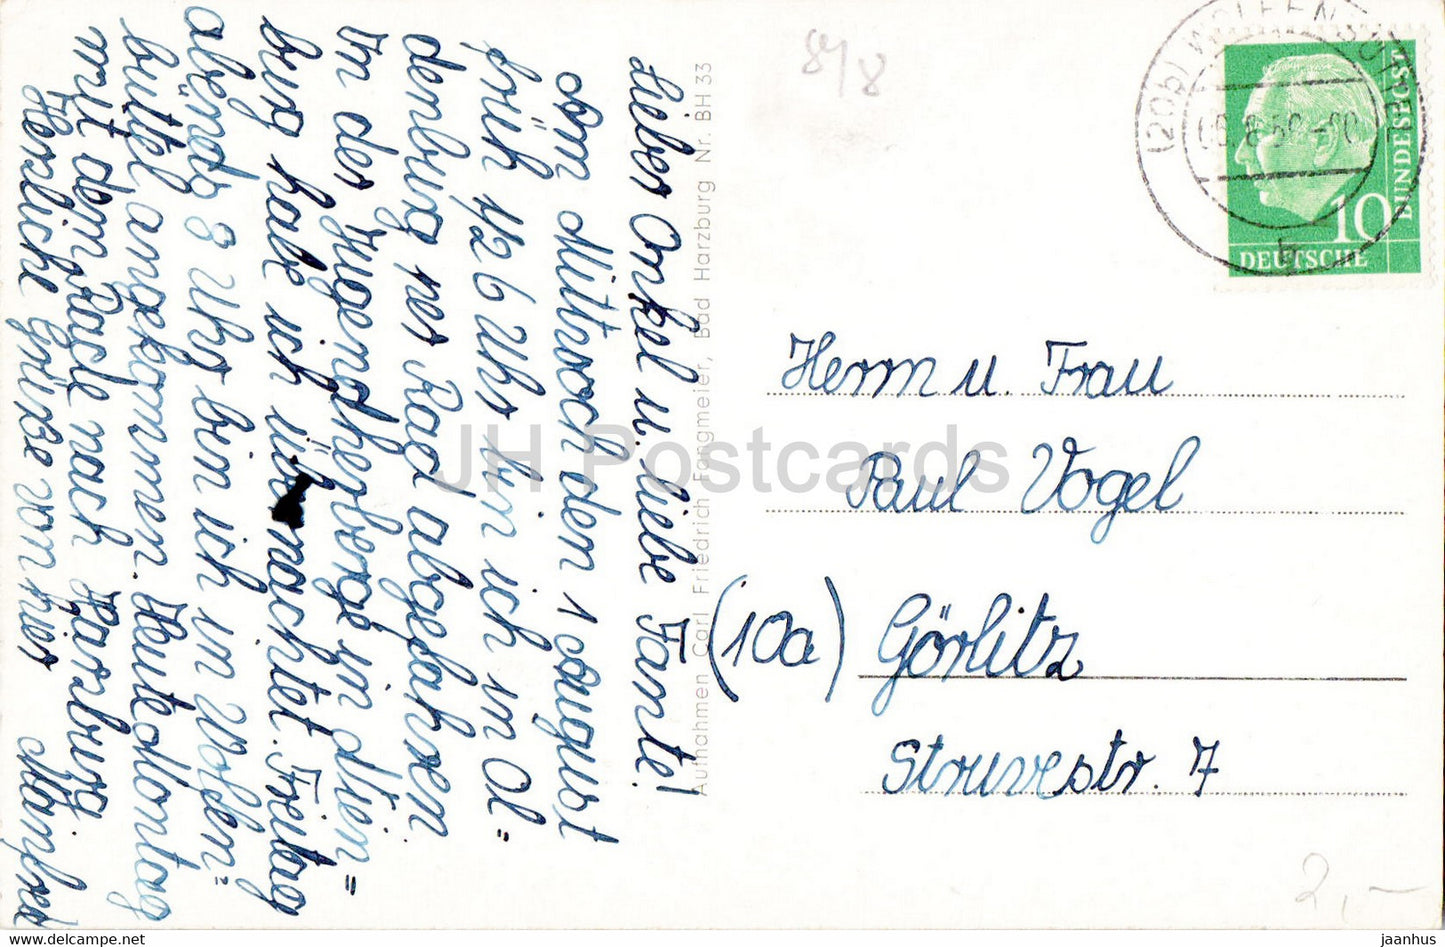 Lieber Onkel u. liebe Tante!
Am Mittwoch den 1 August
früh 1/2 6 Uhr bin ich in Ol=
denburg per Rad abgefahren
In der Jugendherberge in Nien=
burg habe ich über nachtet. Freitag
abends 8 Uhr bin ich in Wolfen=
büttel angekommen. Heute Montag
mit dem Rade nach Harzburg.
Herzliche Grüße von hier
Manfred
Aufnahmen Carl Friedrich Fangmeier, Bad Harzburg Nr. BH 33
8/8
(20b) WOLFENBÜTTEL
b
10
DEUTSCHE
BUNDESPOST
Herrn u. Frau
Paul Vogel
(10a) Görlitz
Struvestr. 7
2,-
JH Postcards
www.jhpostcards.com
jaanhus